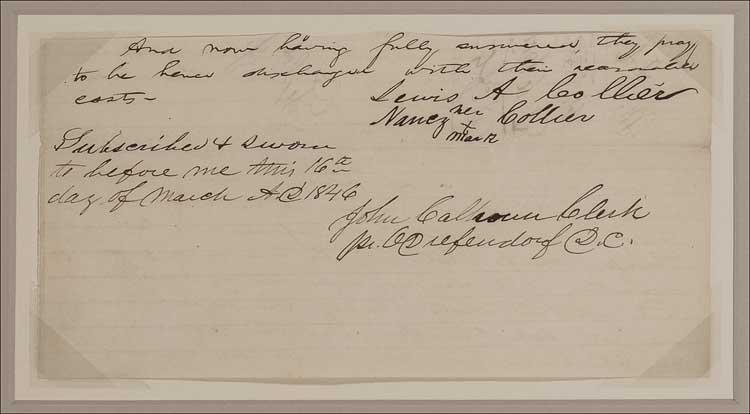 And now having fully answered, they pray
to be hence discharged with their reasonable
costs -
Lewis A Collier
Nancy her x mark Collier
Subscribed & sworn
to before me this 16th
day of March AD 1846
John Calhoun Clerk
pr. Diefendorf D.C.